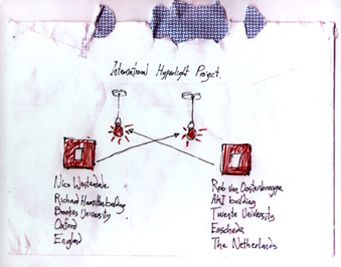 International Hyperlight Project.
Nico Westendale
Richard Hamilton building
Brookes University
Oxford
England
Rob van Oostenbrugge
AKI building
Twente University
Enschede
The Netherlands